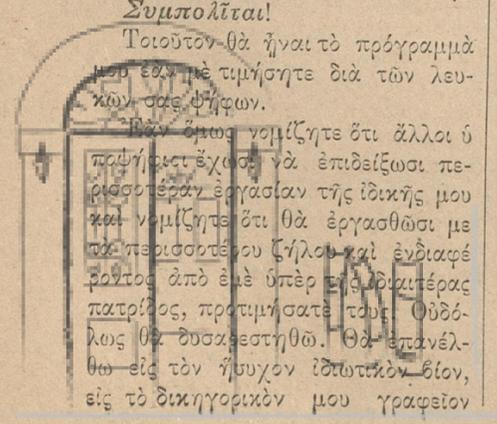 Συμπολῖται!
Τοιοῦτον θὰ ἦναι τὸ πρόγραμμά
μου ἐὰν μὲ τιμήσητε διὰ τῶν λευ-
κῶν σας ψήφων.
Ἐὰν ὅμως νομίζητε ὅτι ἄλλοι ὑ
ποψήφιοι ἔχωσι νὰ ἐπιδείξωσι πε-
ρισσοτέραν ἐργασίαν τῆς ἰδικῆς μου
καὶ νομίζητε ὅτι θὰ ἐργασθῶσι με
τὰ περισσοτέρου ζήλου καὶ ἐνδιαφέ
ροντος ἀπὸ ἐμὲ ὑπὲρ τῆς ἰδιαιτέρας
πατρίδος, προτιμήσατε τους. Οὐδό-
λως θὰ δυσαρεστηθῶ. Θὰ ἐπανέλ-
θω εἰς τὸν ἥσυχον ἰδιωτικὸν βίον,
εἰς τὸ δικηγορικὸν μου γραφεῖον